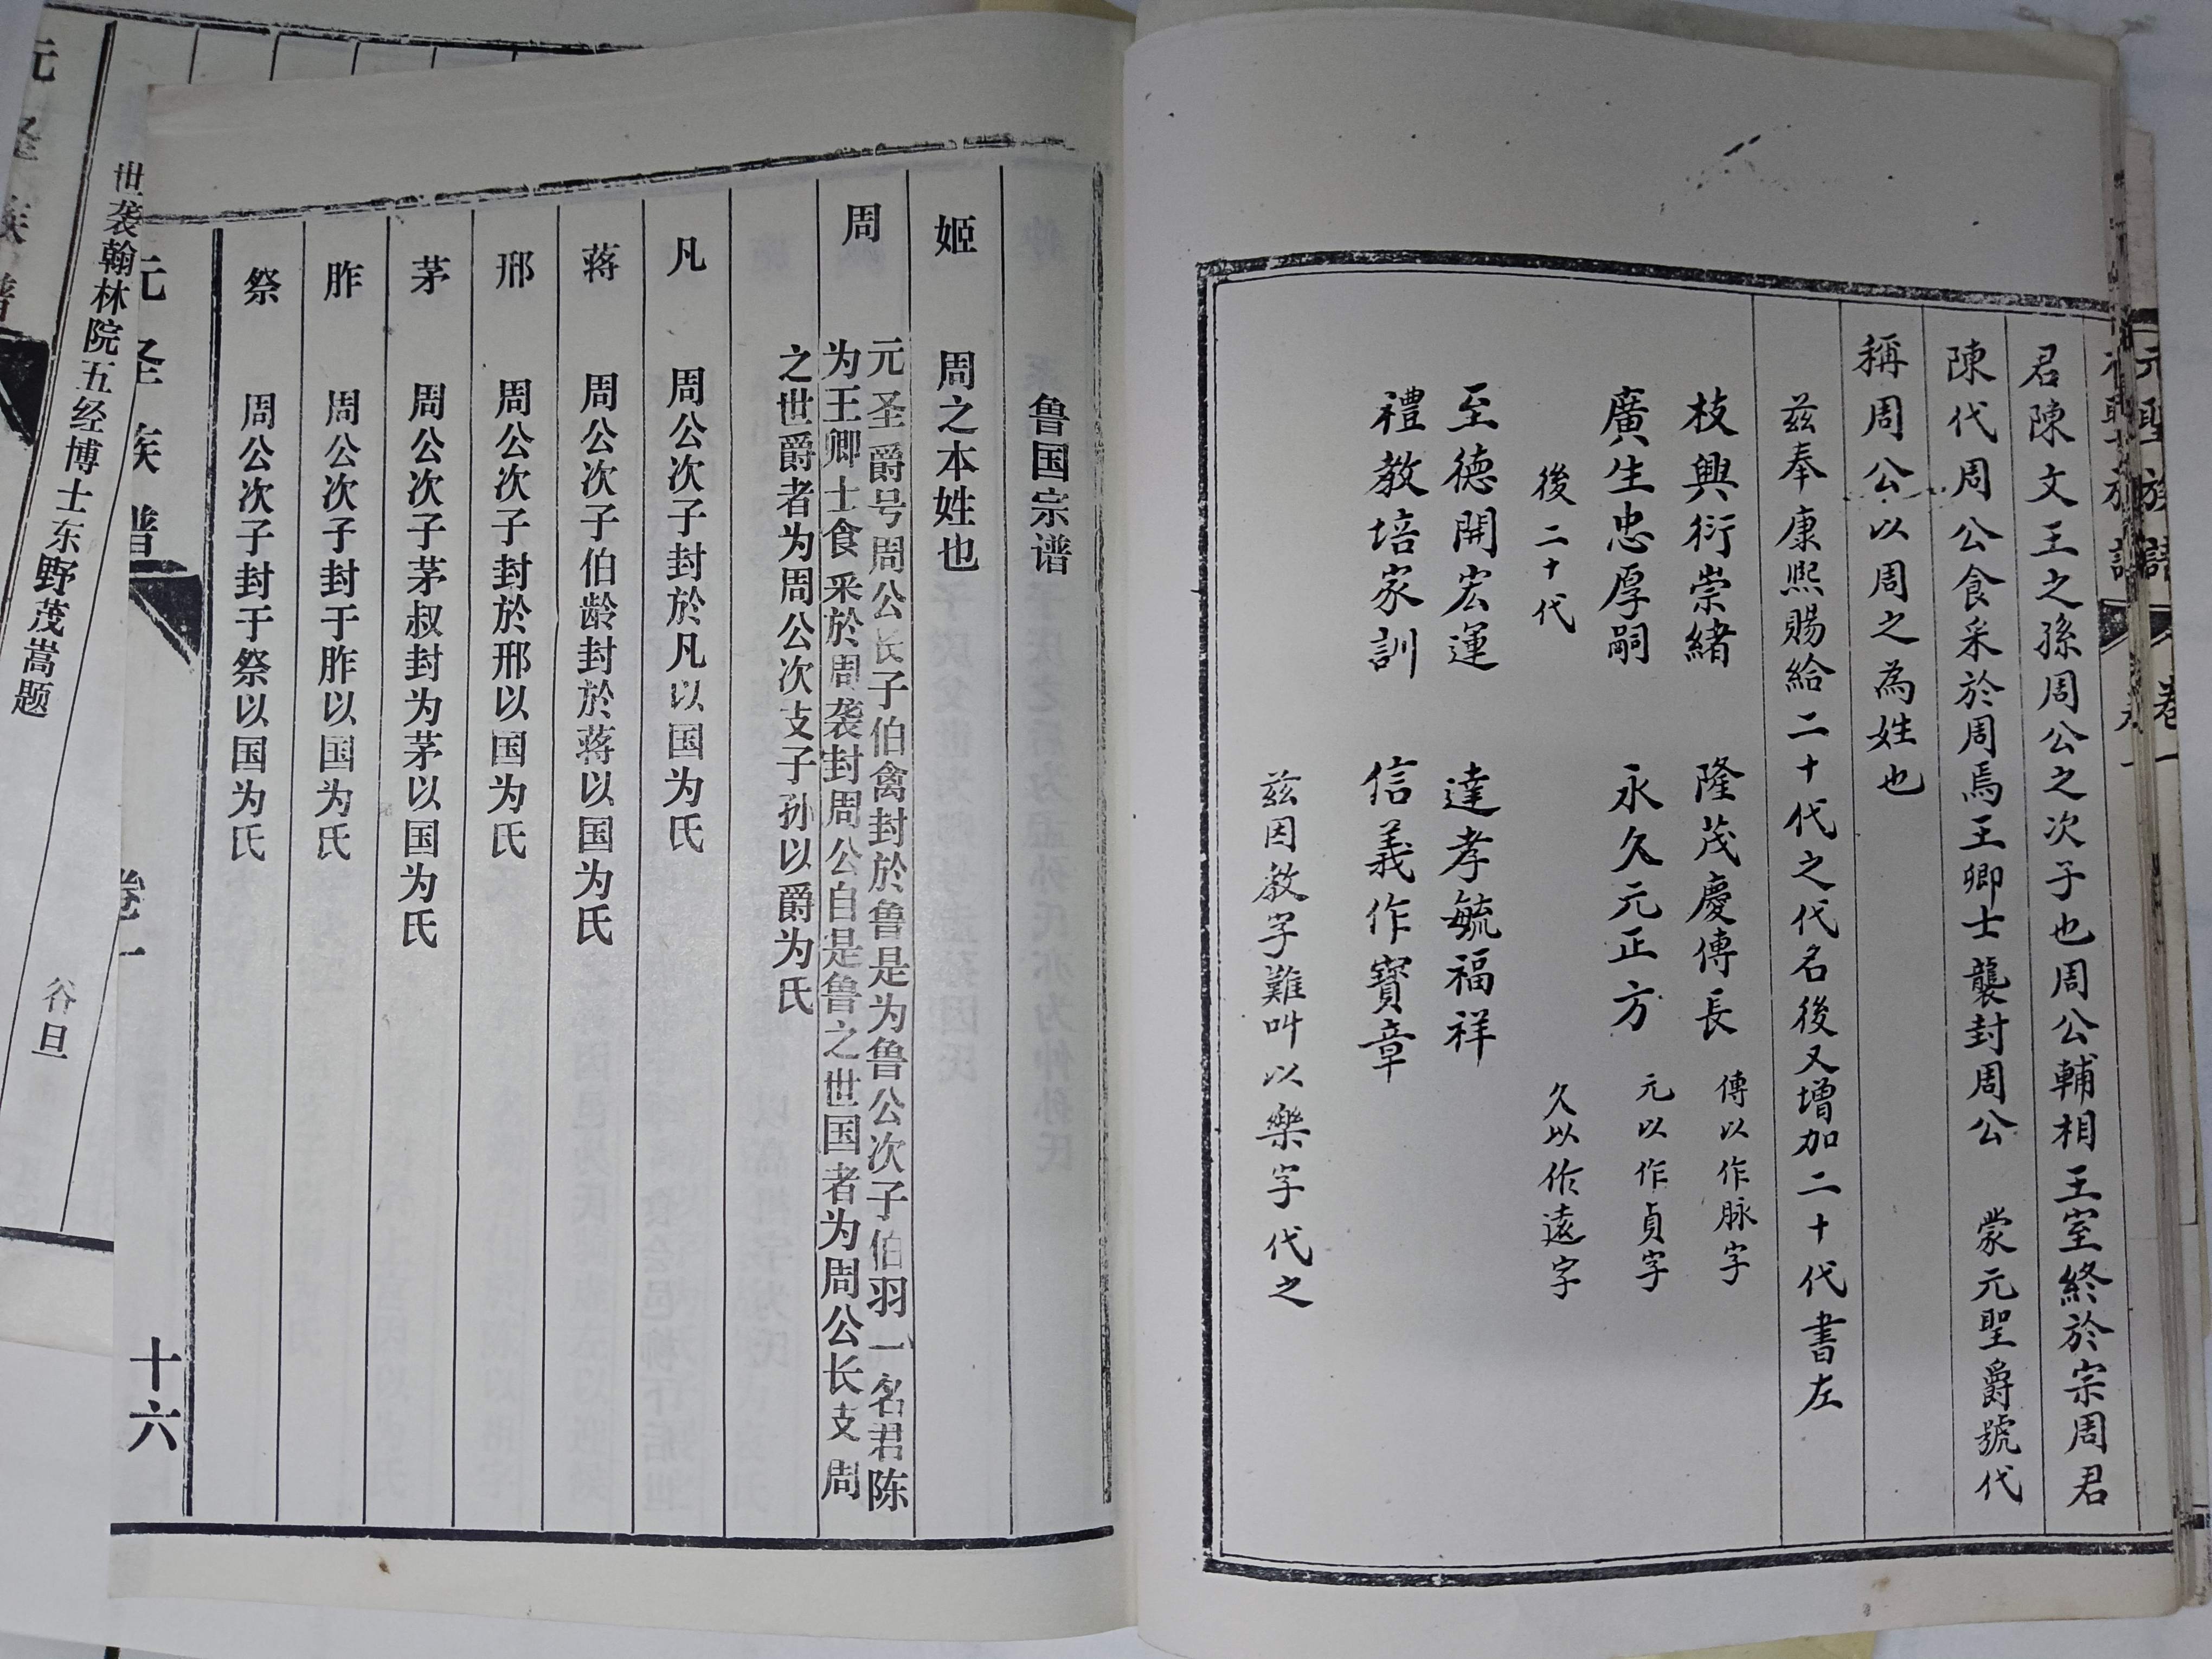 元聖族譜
卷一
君陳文王之孫周公之次子也周公輔相王室終於宗周君
陳代周公食采於周焉王卿士襲封周公 蒙元聖爵號代
稱周公以周之為姓也
茲奉康熙賜給二十代之代名後又增加二十代書左
枝興衍崇緒 隆茂慶傳長 傳以作脉字
廣生忠厚嗣 永久元正方 元以作貞字
後二十代 久以作遠字
至德開宏運 達孝毓福祥
禮教培家訓 信義作寶章
茲因教字難叫以樂字代之
鲁国宗谱
姬 周之本姓也
周 元圣爵号周公长子伯禽封於鲁是为鲁公次子伯羽一名君陈
为王卿士食采於周袭封周公自是鲁之世国者为周公长支周
之世爵者为周公次支子孙以爵为氏
凡 周公次子封於凡以国为氏
蒋 周公次子伯龄封於蒋以国为氏
邢 周公次子封於邢以国为氏
茅 周公次子茅叔封为茅以国为氏
胙 周公次子封于胙以国为氏
祭 周公次子封于祭以国为氏
元圣族谱 卷一 十六
世袭翰林院五经博士东野茂嵩题 谷旦
元圣族谱